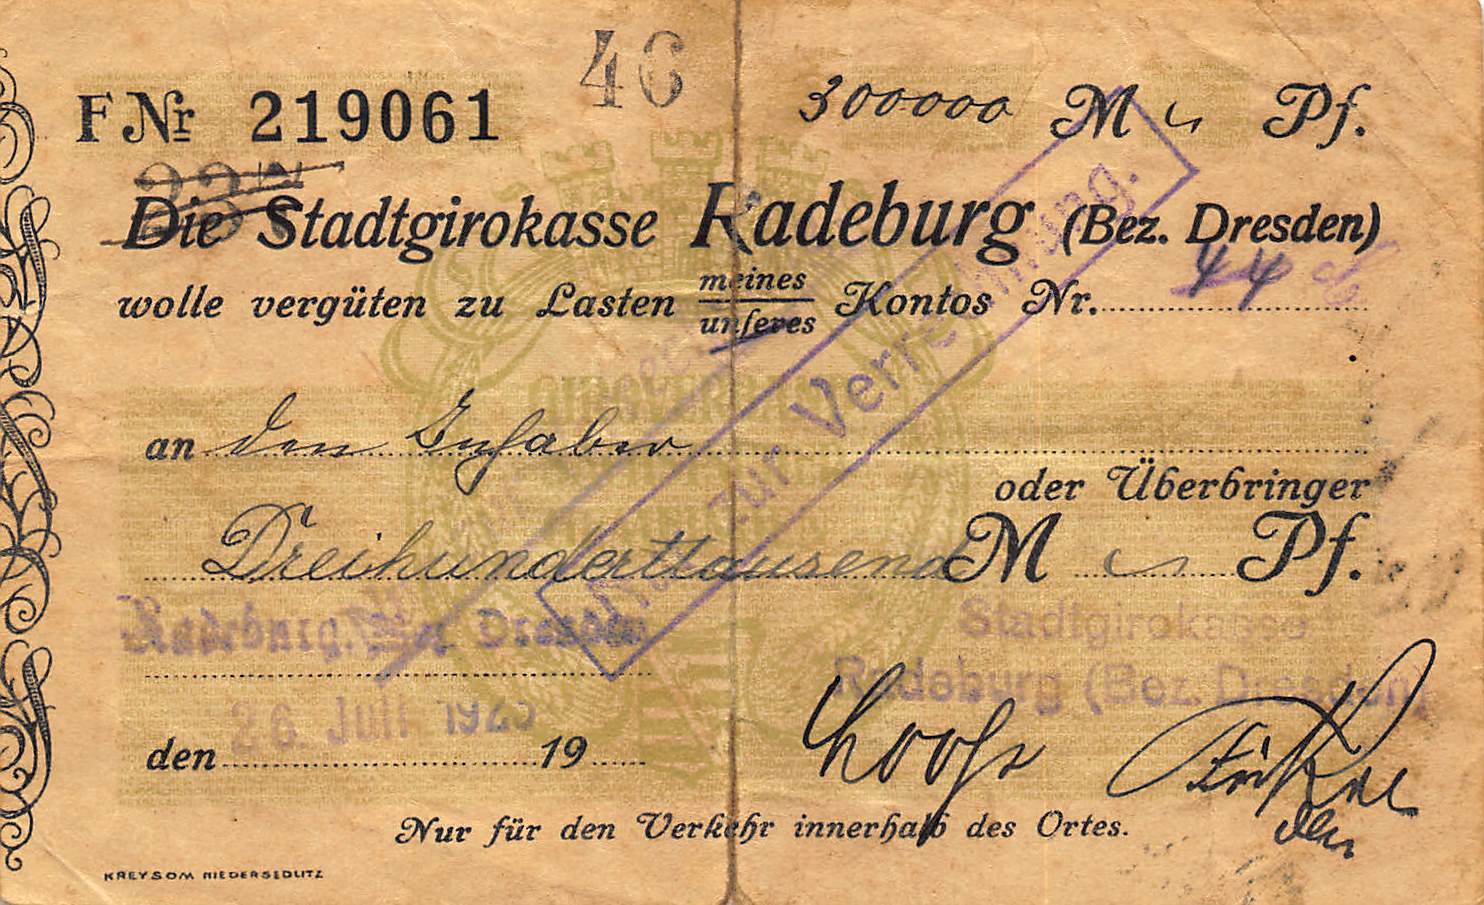 46
F Nr 219061
300000 M Pf.
Die Stadtgirokasse Radeburg (Bez. Dresden)
wolle vergüten zu Lasten meines
unseres Kontos Nr. 44
an den Inhaber
oder Überbringer
Dreihunderttausend M Pf.
Radeburg, Bez. Dresden
Stadtgirokasse
Radeburg (Bez. Dresden)
26. Juli 1923
den 19
Nur zur Verrechnung.
Nur für den Verkehr innerhalb des Ortes.
KREYSOM NIEDERSEDLITZ